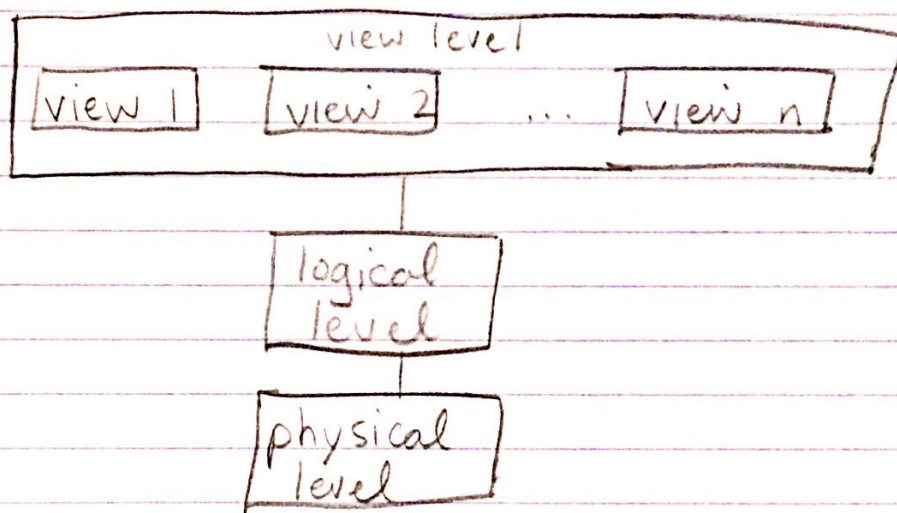 view level
view 1 view 2 ... view n
logical
level
physical
level